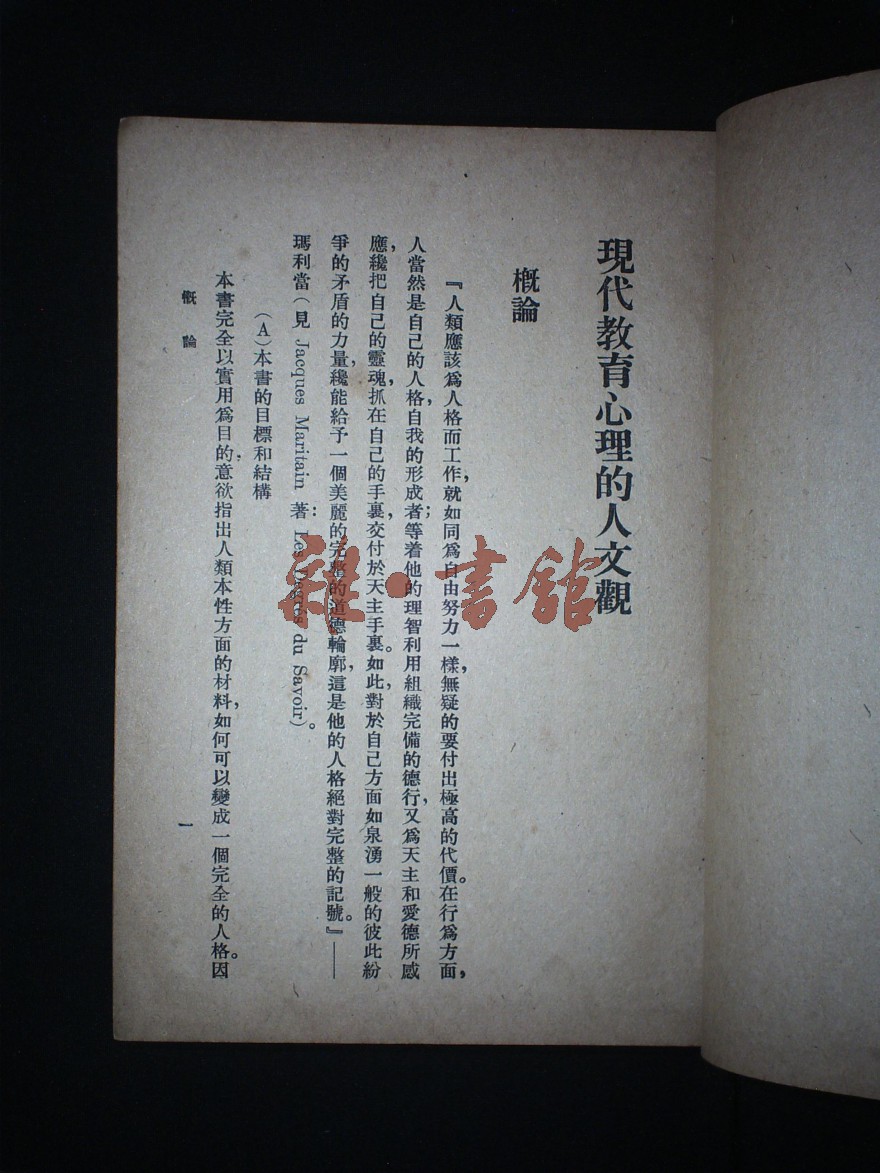 現代教育心理的人文觀
概論
『人類應該爲人格而工作，就如同爲自由努力一樣，無疑的要付出極高的代價。在行爲方面，
人當然是自己的人格，自我的形成者；等着他的理智利用組織完備的德行，又爲天主和愛德所感
應，纔把自己的靈魂，抓在自己的手裏，交付於天主手裏。如此，對於自己方面如泉湧一般的彼此紛
爭的矛盾的力量，纔能給予一個美麗的完整的道德輪廓，這是他的人格絕對完整的記號。』——
瑪利當（見 Jacques Maritain 著：Les Degrés du Savoir）。
（A）本書的目標和結構
本書完全以實用爲目的，意欲指出人類本性方面的材料，如何可以變成一個完全的人格。因
概論
一
雜·書館